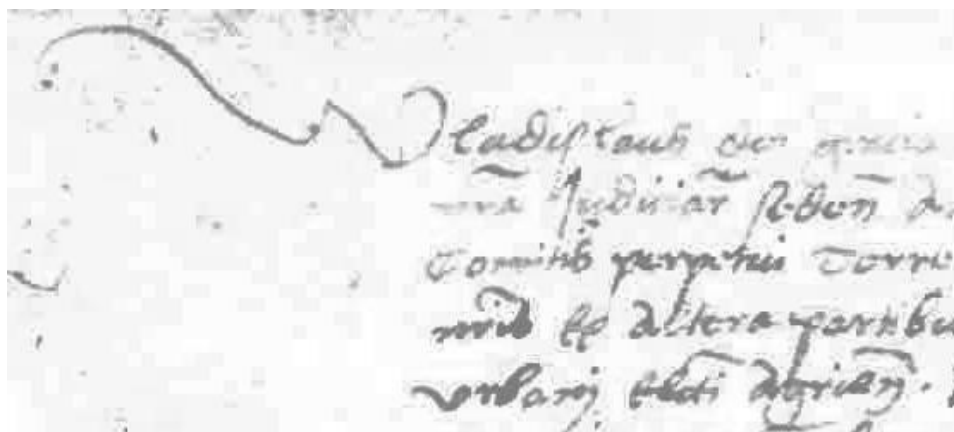 Wladislaus dei gracia
n̄ra Judiciar̄ seden̄
Comitis perpetui Terre
n̄ris et altera partibu
vrbanj elc̄ti Agrien̄.